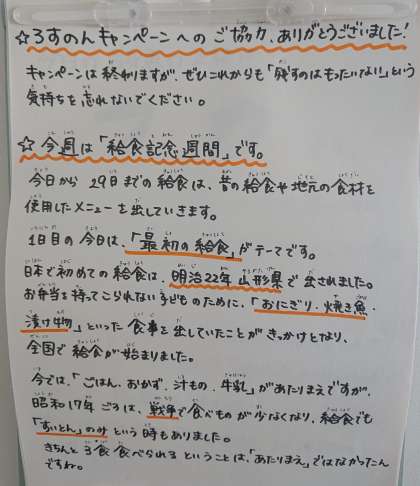 ☆ろすのんキャンペーンへのご協力、ありがとうございました!
キャンペーンは終わりますが、ぜひこれからも「残すのはもったいない」という
気持ちを忘れないでください。
☆今週は「給食記念週間」です。
今日から29日までの給食は、昔の給食や地元の食材を
使用したメニューを出していきます。
1日目の今日は、「最初の給食」がテーマです。
日本で初めての給食は、明治22年山形県で出されました。
お弁当を持ってこられない子どものために、「おにぎり・焼き魚・
漬け物」といった食事を出していたことがきっかけとなり、
全国で給食が始まりました。
今では、「ごはん、おかず、汁もの、牛乳」があたりまえですが、
昭和17年ごろは、戦争で食べものが少なくなり、給食でも
「すいとん」のみという時もありました。
きちんと3食食べられるということは、「あたりまえ」ではなかったん
ですね。